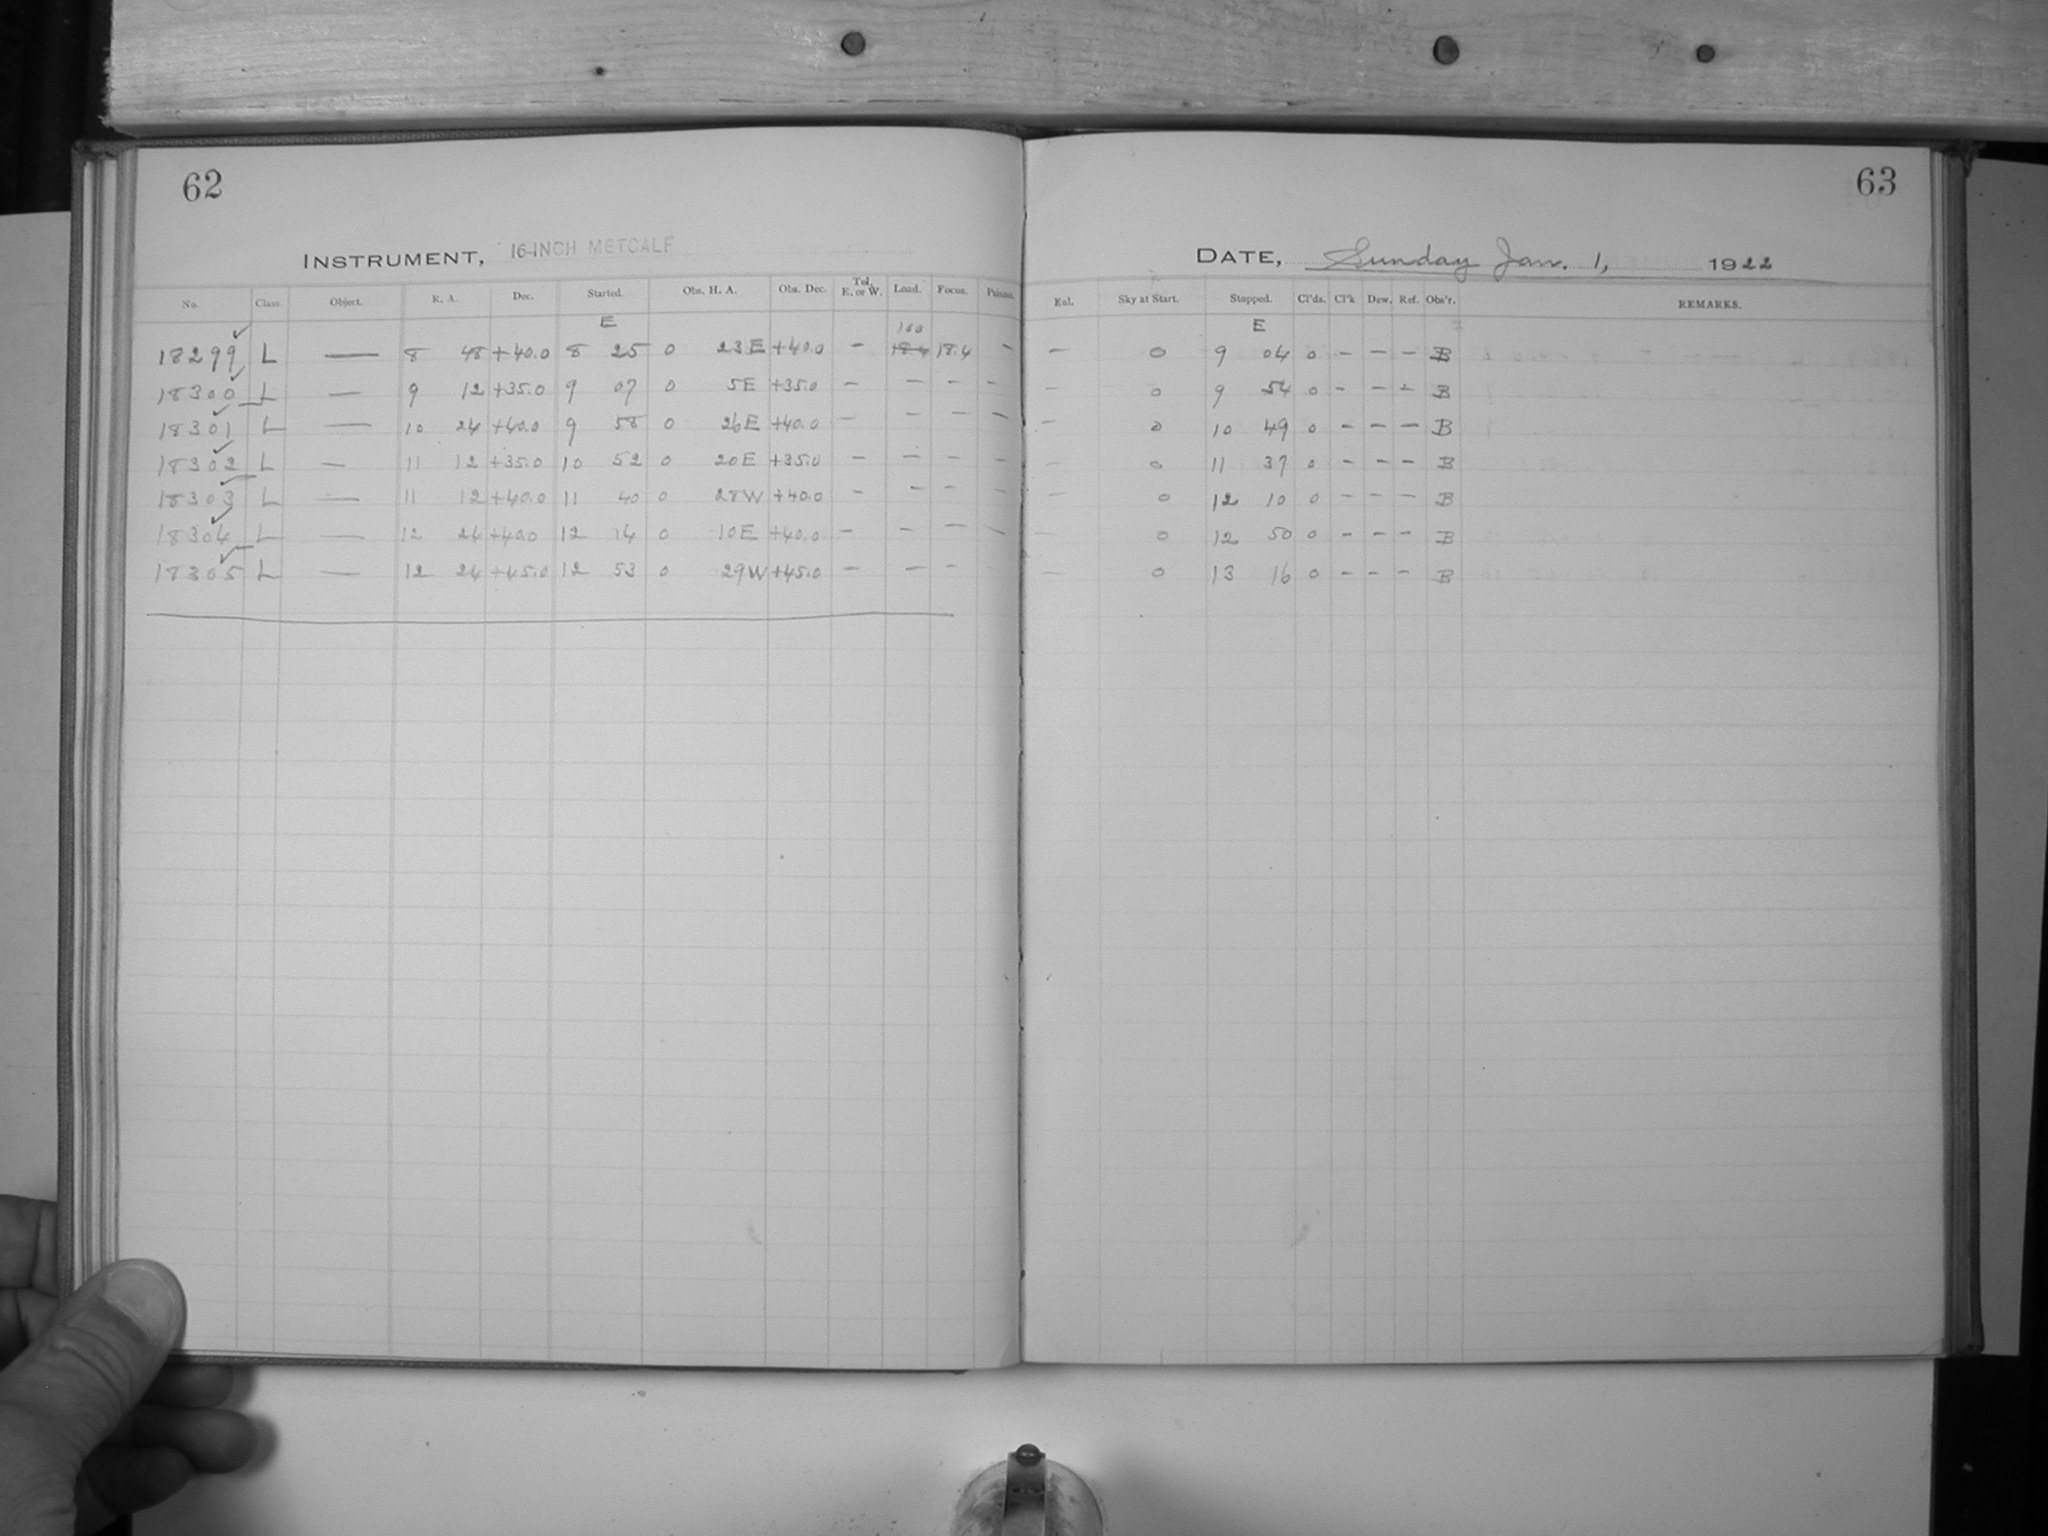 62
INSTRUMENT, 16-INCH METCALF
No. Class. Object. R. A. Dec. Started. Obs. H. A. Obs. Dec. Tel. E. or W. Load. Focus.
E
100
18299 L — 8 48 +40.0 8 25 0 23E +40.0 – 18.4 18.4 –
18300 L — 9 12 +35.0 9 07 0 5E +35.0 – – – –
18301 L — 10 24 +40.0 9 58 0 26E +40.0 – – – –
18302 L — 11 12 +35.0 10 52 0 20E +35.0 – – – –
18303 L — 11 12 +40.0 11 40 0 28W +40.0 – – – –
18304 L — 12 24 +40.0 12 14 0 10E +40.0 – – – –
18305 L — 12 24 +45.0 12 53 0 29W +45.0 – – – –
63
DATE, Sunday Jan. 1, 1922
Sky at Start. Stopped. Cl'ds. Cl'k Dew. Ref. Obs'r. REMARKS.
E
– 0 9 04 0 – – – B
– 0 9 54 0 – – – B
– 0 10 49 0 – – – B
– 0 11 37 0 – – – B
– 0 12 10 0 – – – B
– 0 12 50 0 – – – B
– 0 13 16 0 – – – B